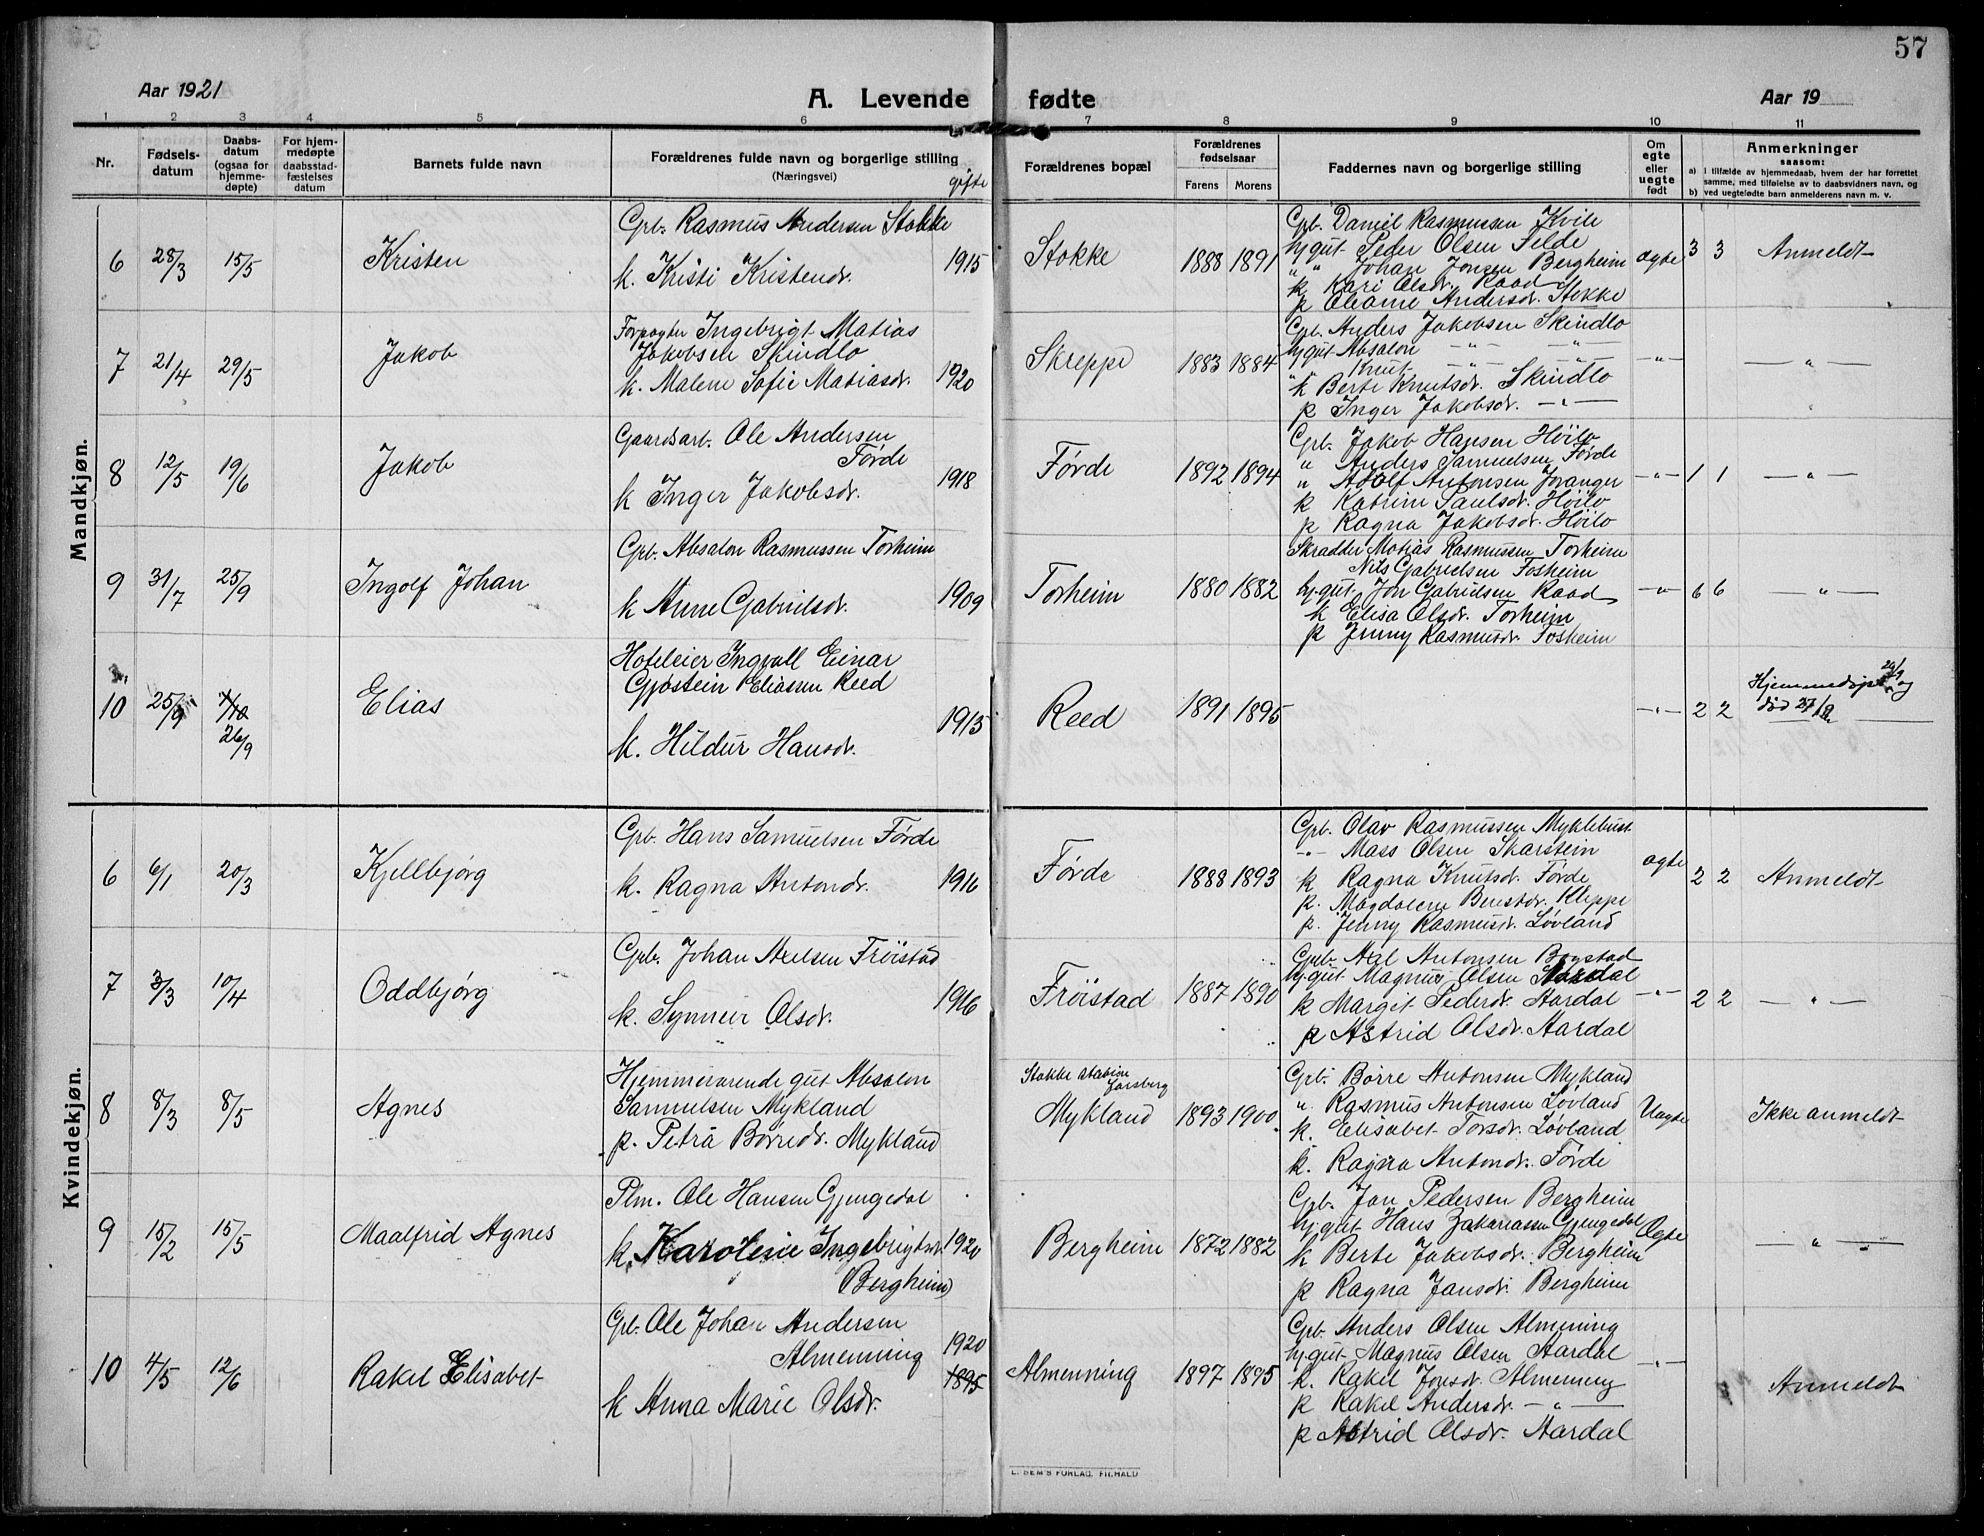 57
Aar 1921
A. Levende fødte
Aar 19
1 2 3 4 5 6 7 8 9 10 11
Nr.
Fødsels-
datum
Daabs-
datum
(ogsaa for
hjemme-
døpte)
For hjem-
medøpte
daabsstad-
fæstelses
datum
Barnets fulde navn
Forældrenes fulde navn og borgerlige stilling
(Næringsvei)
gifte
Forældrenes bopæl
Forældrenes
fødselsaar
Farens Morens
Faddernes navn og borgerlige stilling
Om
egte
eller
uegte
født
Anmerkninger
saasom:
a) I tilfælde av hjemmedaab, hvem der har forrettet
samme, med tilføielse av to daabsvidners navn, og
b) ved uegtefødte barn anmelderens navn m. v.
Mandkjøn.
6 28/3 15/5 Kristen
Grb. Rasmus Andersen Stokke
k. Kristi Kristendr. 1915
Stokke 1888 1891
Grb. Daniel Rasmussen Kvile
hj.gut Peder Olsen Felde
" " Johan Jonsen Bergheim
k. Kari Olsdr. Raad
p Oleane Andersdr. Stokke
ægte 3 3 Anmeldt
7 21/4 29/5 Jakob
Forpagter Ingebrigt Matias
Jakobsen Skindlo
k. Malene Sofie Matiasdr. 1920
Skreppe 1883 1884
Grb. Anders Jakobsen Skindlo
hj.gut Absalon — " — — " —
" " Knut — " — — " —
k Berte Knutsdr. Skindlo
p Inger Jakobsdr. — " —
— " — — " —
8 12/5 19/6 Jakob
Gaardsarb. Ole Andersen
Førde
k Inger Jakobsdr. 1918
Førde 1892 1894
Grb. Jakob Hansen Høilo
" Anders Samuelsen Førde
" Adolf Antonsen Joranger
k Katrine Paulsdr. Høilo
p Ragna Jakobsdr. Høilo
— " — 1 1 — " —
9 31/7 25/9 Ingolf Johan
Grb. Absalon Rasmussen Torheim
k Anne Gabrielsdr. 1909
Torheim 1880 1882
Skrædder Matias Rasmussen Torheim
Nils Gabrielsen Fosheim
hj.gut. Jon Gabrielsen Raad
k Elisa Olsdr. Torheim
p Jenny Rasmusdr. Fosheim
— " — 6 6 — " —
10 25/9 7/10 26/9 Elias
Hoteleier Ingvall Einar
Gjostein Eliassen Reed
k. Hildur Hansdr. 1915
Reed 1891 1895
— " — 2 2
Hjemmedøpt og
død
Kvindekjøn.
6 6/1 20/3 Kjellbjørg
Grb. Hans Samuelsen Førde
k. Ragna Antondr. 1916
Førde 1888 1893
Grb. Olav Rasmussen Myklebust
— " — Mass Olsen Skarstein
k Ragna Knutsdr. Førde
p. Magdalene Berestdr. Kleppe
p. Jenny Rasmusdr. Løvland
ægte 2 2 Anmeldt
7 3/3 10/4 Oddbjørg
Grb. Johan Axelsen Frøistad
k. Synneve Olsdr. 1916
Frøistad 1887 1890
Grb. Axel Antonsen Bogstad
hj.gut. Magnus Olsen Aardal
k Margit Pedersdr. Aardal
p Astrid Olsdr. Aardal
— " — 2 2 — " —
8 8/3 8/5 Agnes
Hjemmeværende gut Absalon
Samuelsen Mykland
p. Petra Børredr. Mykland
Stokke
Mykland 1893 1900
Grb. Børre Antonsen Mykland
" Rasmus Antonsen Løvland
k. Elisabet Torsdr. Løvland
k. Ragna Antondr. Førde
Uægte Ikke anmeldt
9 15/2 15/5 Maalfrid Agnes
Plm. Ole Hansen Gjengedal
k. Karoline Ingebrigtsdr. 1920
(Bergheim)
Bergheim 1872 1882
Grb. Jon Pedersen Bergheim
hj.gut Hans Zakariassen Gjengedal
k Berte Jakobsdr. Bergheim
p Ragna Jansdr. Bergheim
Ægte — " —
10 4/5 12/6 Rakel Elisabet
Grb. Ole Johan Andersen
Almenning 1920
1895
k Anna Marie Olsdr.
Almenning 1897 1895
Grb. Anders Olsen Almening
hj.gut Magnus Olsen Aardal
k. Rakel Jonsdr. Almening
p Rakel Andersdr. — " —
p Astrid Olsdr. Aardal
— " — Anmeldt
L. SEM'S FORLAG, FR.HALD